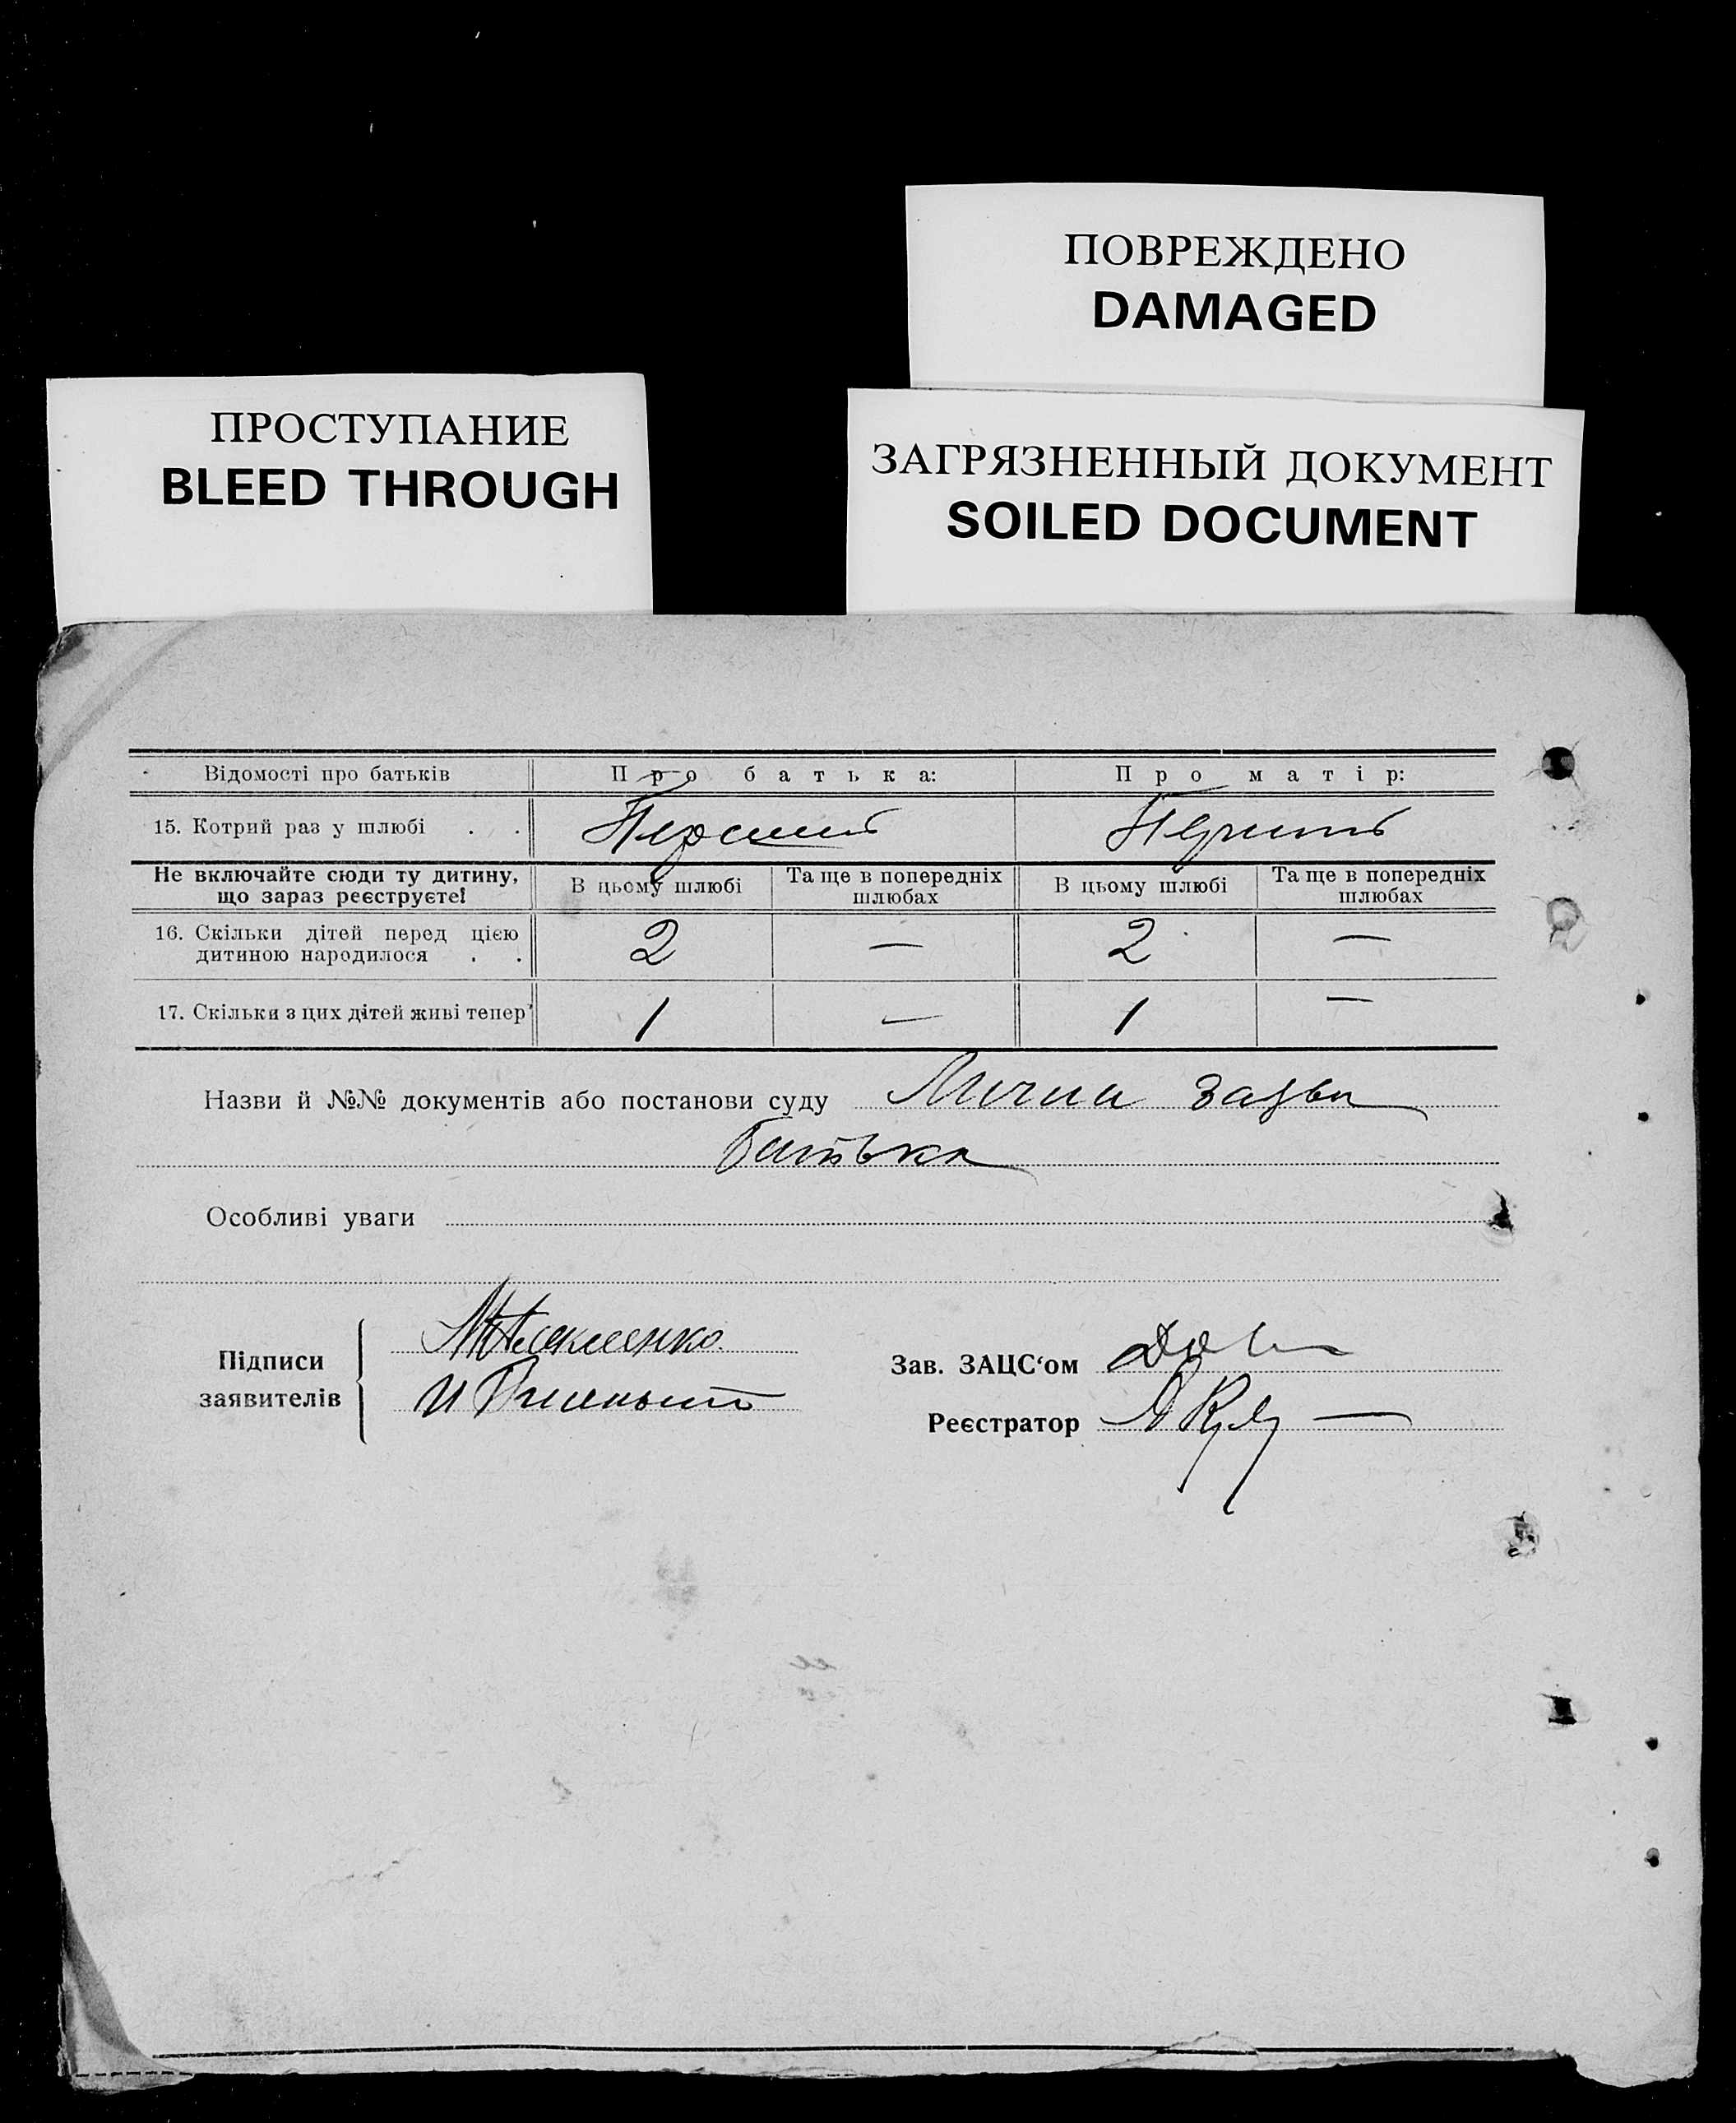 ПОВРЕЖДЕНО
DAMAGED
ПРОСТУПАНИЕ
BLEED THROUGH
ЗАГРЯЗНЕННЫЙ ДОКУМЕНТ
SOILED DOCUMENT
Відомості про батьків Про батька: Про матір:
15. Котрий раз у шлюбі . . Перший Перший
Не включайте сюди ту дитину, що зараз реєструєте! В цьому шлюбі Та ще в попередніх шлюбах В цьому шлюбі Та ще в попередніх шлюбах
16. Скільки дітей перед цією дитиною народилося . . 2 — 2 —
17. Скільки з цих дітей живі тепер 1 — 1 —
Назви й №№ документів або постанови суду Лична заява
батька
Особливі уваги
Підписи
заявителів
Зав. ЗАЦС‘ом
Реєстратор